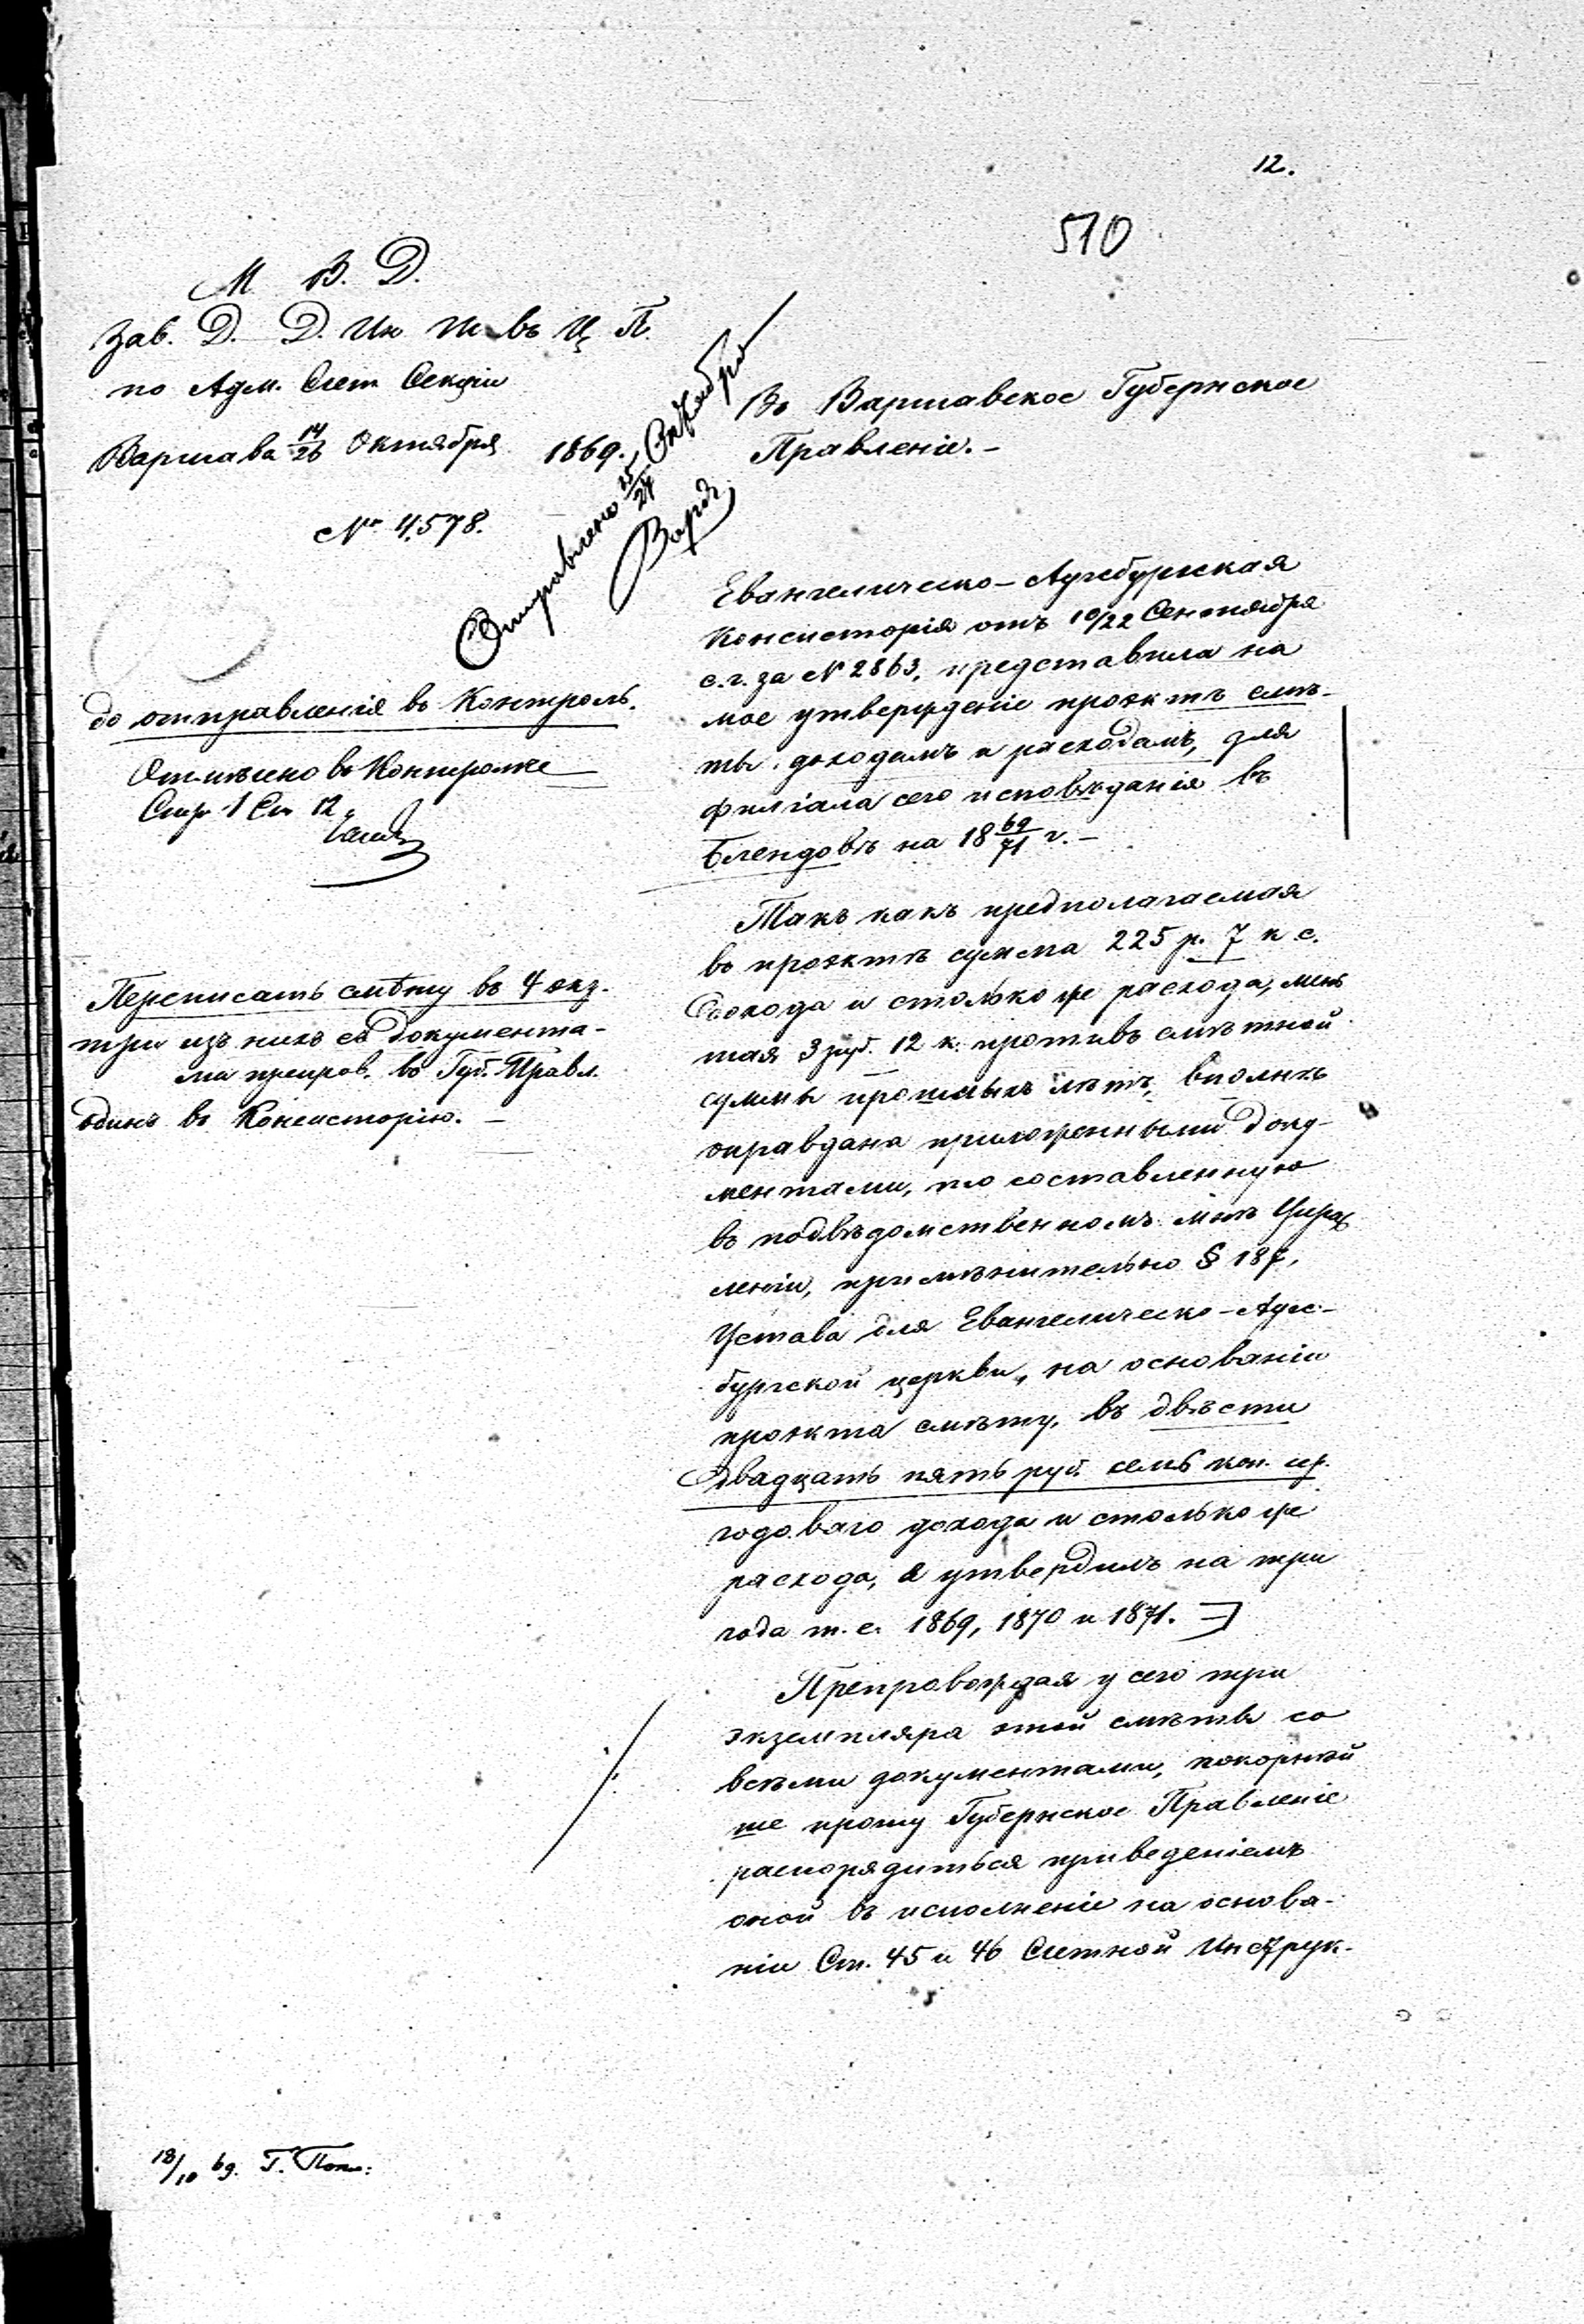 12.
510
М. В. Д.
Зав. Д. Д. Ин. Ис. въ Ц. П.
по Адм. Счет. Секціи
Варшава 14/26 Октября 1869.
№ 4578.
Отправлено 15/27 Октября
Въ Варшавское Губернское
Правленіе. –
до отправленія въ Контроль.
Отмѣчено въ Контролке
Стр 1 Ст 12
Евангелическо-Аугсбургская
Консисторія отъ 10/22 Сентября
с.г. за № 2863, представила на
мое утвержденіе проэктъ смѣ-
ты доходамъ и расходамъ, для
филіала сего исповѣданія въ
Блендовѣ на 18 69/71 г. –
Такъ какъ предполагаемая
въ проэктѣ сумма 225 р. 7 к. с.
дохода и столько же расхода, мень
шая 3 руб. 12 к. противъ смѣтной
суммы прошлыхъ лѣтъ, вполнѣ
оправдана приложенными доку-
ментами, то составленную
въ подвѣдомственномъ мнѣ Управ
леніи, примѣнительно § 187,
Устава для Евангелическо-Аугс-
бургской церкви, на основаніи
проэкта смѣту, въ двѣсти
двадцать пять руб. семь коп. ср.
годоваго дохода и столько же
расхода, я утвердилъ на три
года т. е. 1869, 1870 и 1871. –
Переписать смѣту въ 4 экз.
три изъ нихъ съ документа-
ми препров. въ Губ. Правл.
одинъ въ Консисторію. –
Препровождая у сего три
экземпляра этой смѣты со
всѣми документами, покорнѣй
ше прошу Губернское Правленіе
распорядиться приведеніемъ
оной въ исполненіе на основа-
ніи Ст. 45 и 46 Счетной Инструк-
18/10 69. Г.